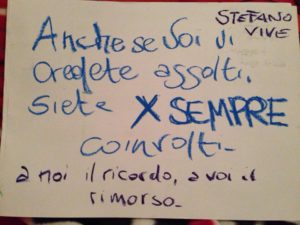 STEFANO
VIVE
Anche se voi vi
credete assolti,
siete X SEMPRE
coinvolti-
a noi il ricordo, a voi il
rimorso-